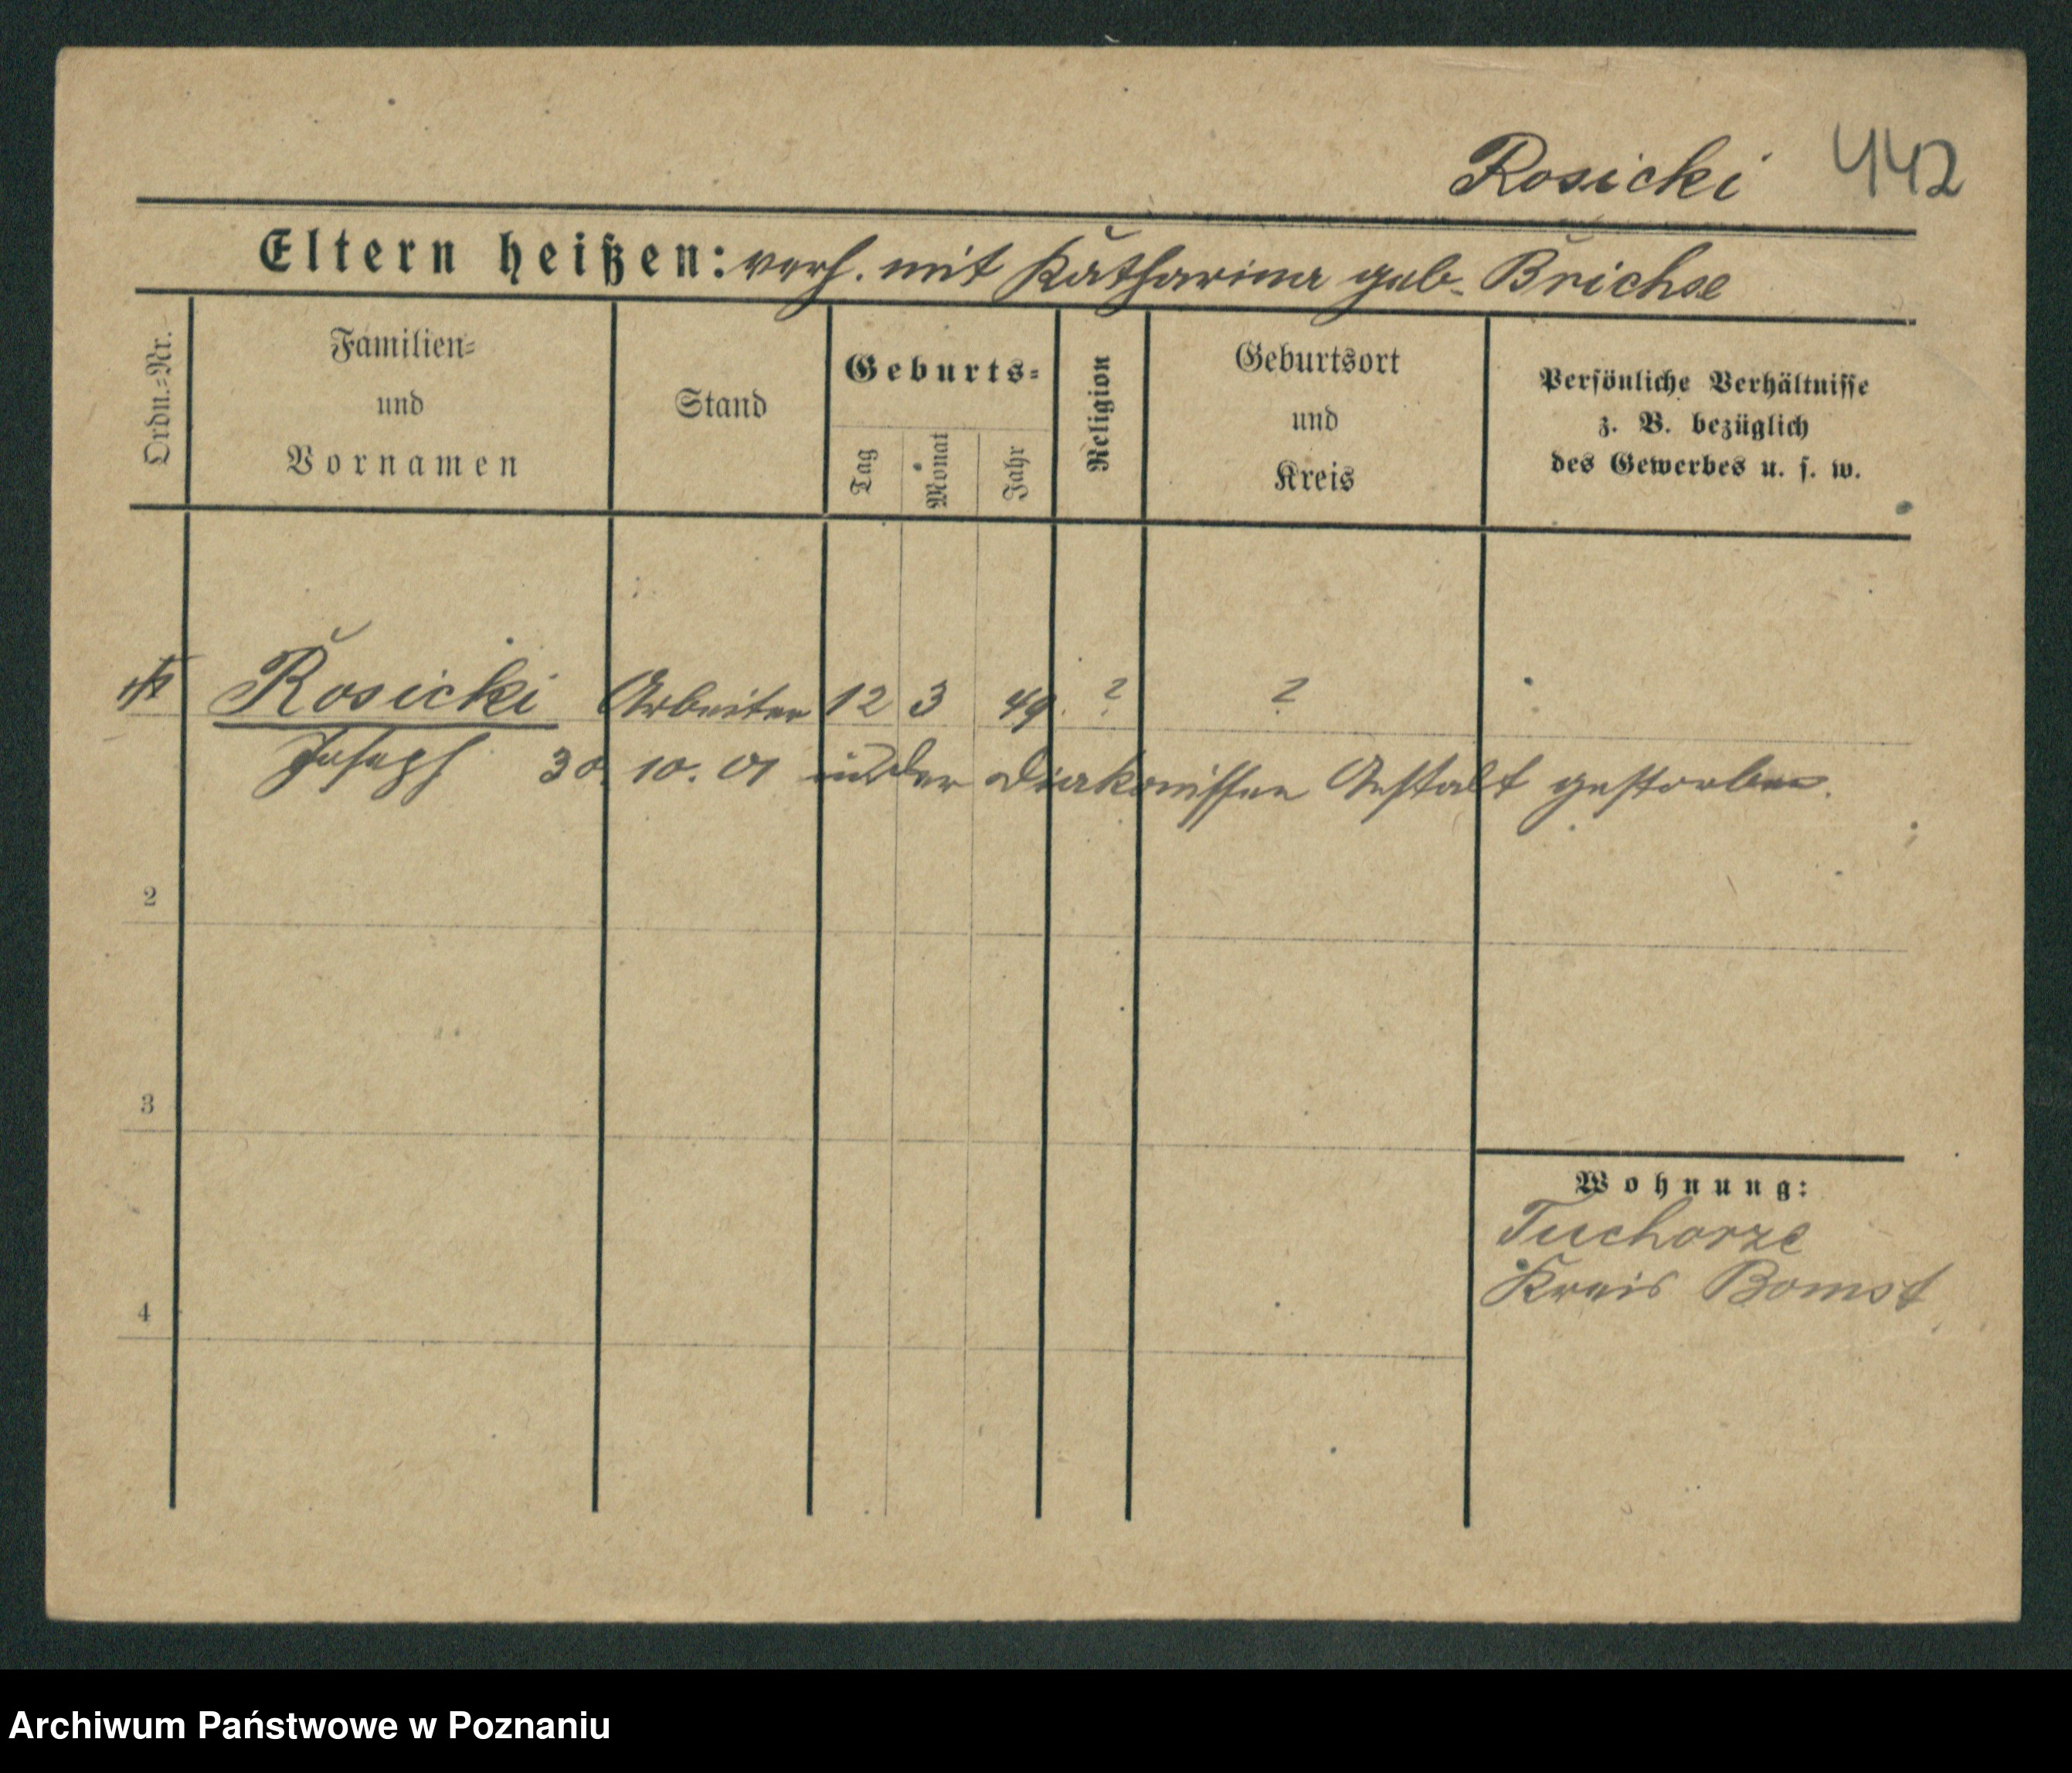 Rosicki 442
Eltern heißen: verh. mit Katharina geb. Brichse
Ordn.=Nr.
Familien=
und
Vornamen
Stand
Geburts=
Tag
Monat
Jahr
Religion
Geburtsort
und
Kreis
Persönliche Verhältnisse
z. B. bezüglich
des Gewerbes u. s. w.
Rosicki Arbeiter 12 3 49 ? ?
Joseph 30. 10. 01 in der Diakonissen Anstalt gestorben.
2
3
4
Wohnung:
Tuchorze
Kreis Bomst
Archiwum Państwowe w Poznaniu